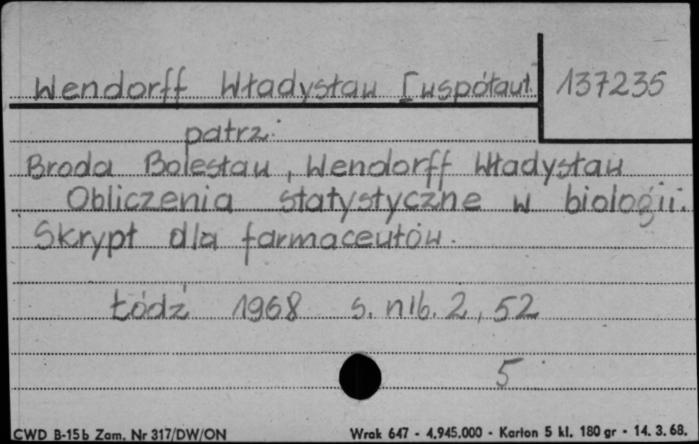 Wendorff Władysław [współaut. 137235
patrz:
Broda Bolesław, Wendorff Władysław
Obliczenia statystyczne w biologii.
Skrypt dla farmaceutów.
Łódź 1968 s. nlb. 2, 52
5
CWD B-15b Zam. Nr 317/DW/ON Wrak 647 - 4.945.000 - Karton 5 kl. 180 gr - 14. 3. 68.